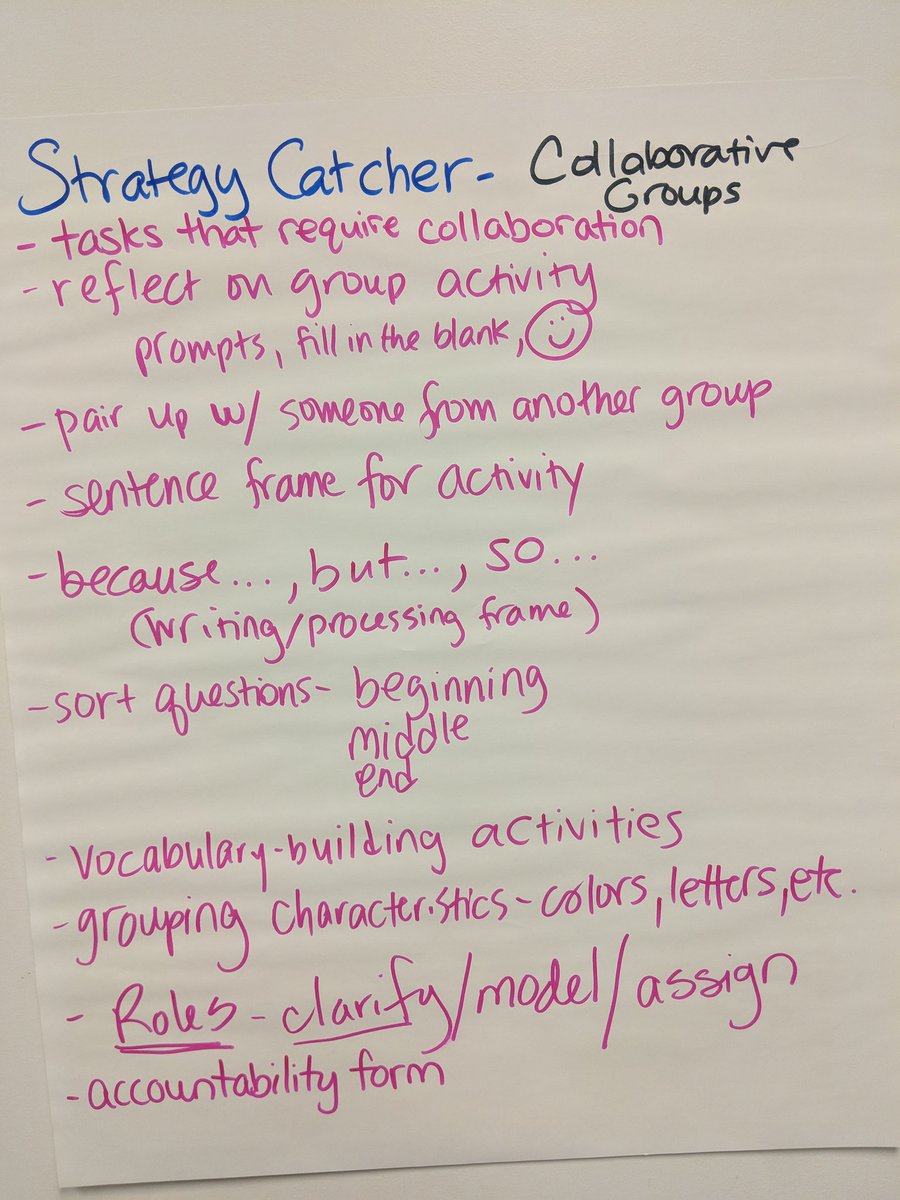 Strategy Catcher- Collaborative
Groups
- tasks that require collaboration
- reflect on group activity
prompts, fill in the blank,
- pair up w/ someone from another group
- sentence frame for activity
- because..., but..., so...
(writing/processing frame)
- sort questions- beginning
middle
end
- vocabulary-building activities
- grouping characteristics- colors, letters, etc.
- Roles - clarify/model/assign
- accountability form